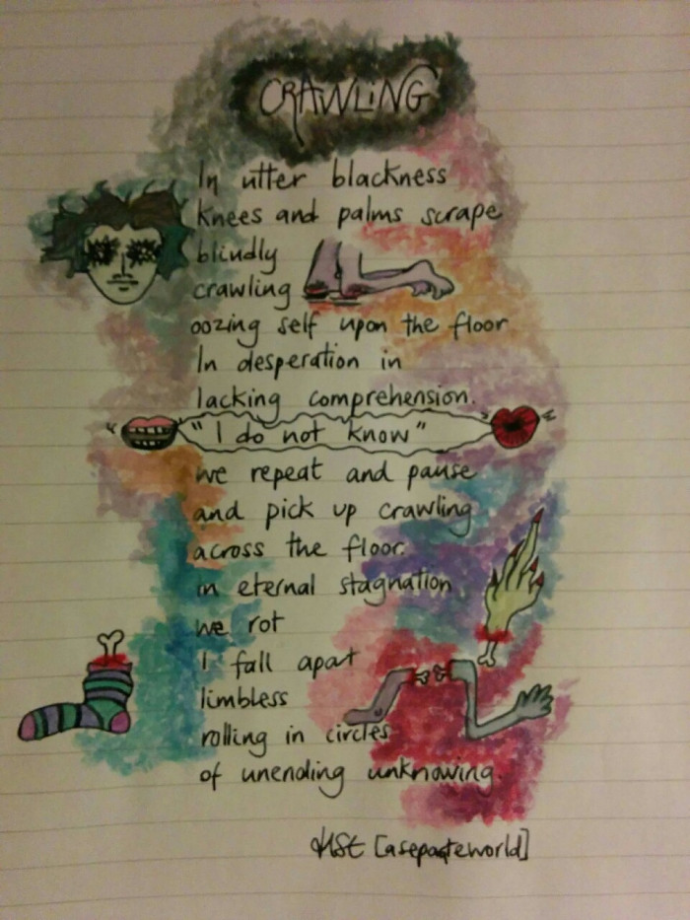 CRAWLING
In utter blackness
knees and palms scrape
blindly
crawling
oozing self upon the floor
In desperation in
lacking comprehension.
"I do not know"
we repeat and pause
and pick up crawling
across the floor.
in eternal stagnation
we rot
I fall apart
limbless
rolling in circles
of unending unknowing.